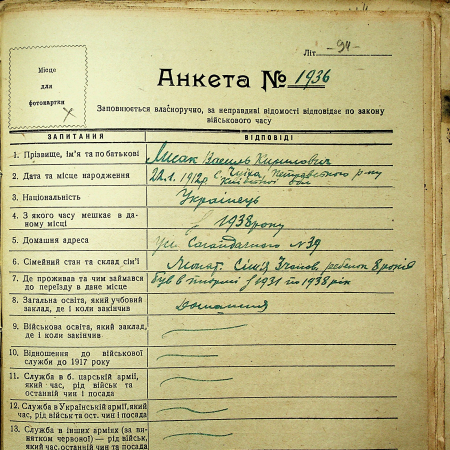 Літ. -94-
Місце
для
фотокартки
Анкета № 1936
Заповнюється власноручно, за неправдиві відомості відповідає по закону
військового часу
ЗАПИТАННЯ
ВІДПОВІДІ
1. Прізвище, ім'я та по батькові
Василь Кирилович
2. Дата та місце народження
22.1.1912р. с. р-ну
Київської обл
3. Національність
Українець
4. З якого часу мешкає в да-
ному місці
1938 року
5. Домашня адреса
ул. Сагайдачного N 39
6. Сімейний стан та склад сім'ї
Сім'я 8 років
7. Де проживав та чим займався
до переїзду в дане місце
був в тюрмі з 1931 по 1938 рік
8. Загальна освіта, який учбовий
заклад, де і коли закінчив
Домашня
9. Військова освіта, який заклад,
де і коли закінчив
10. Відношення до військової
служби до 1917 року
11. Служба в б. царській армії,
який час, рід військ та
останній чин і посада
12. Служба в Українській армії, який
час, рід військ та ост. чин і посада
13. Служба в інших арміях (за ви-
нятком червоної) — рід військ,
який час, останній чин та посада